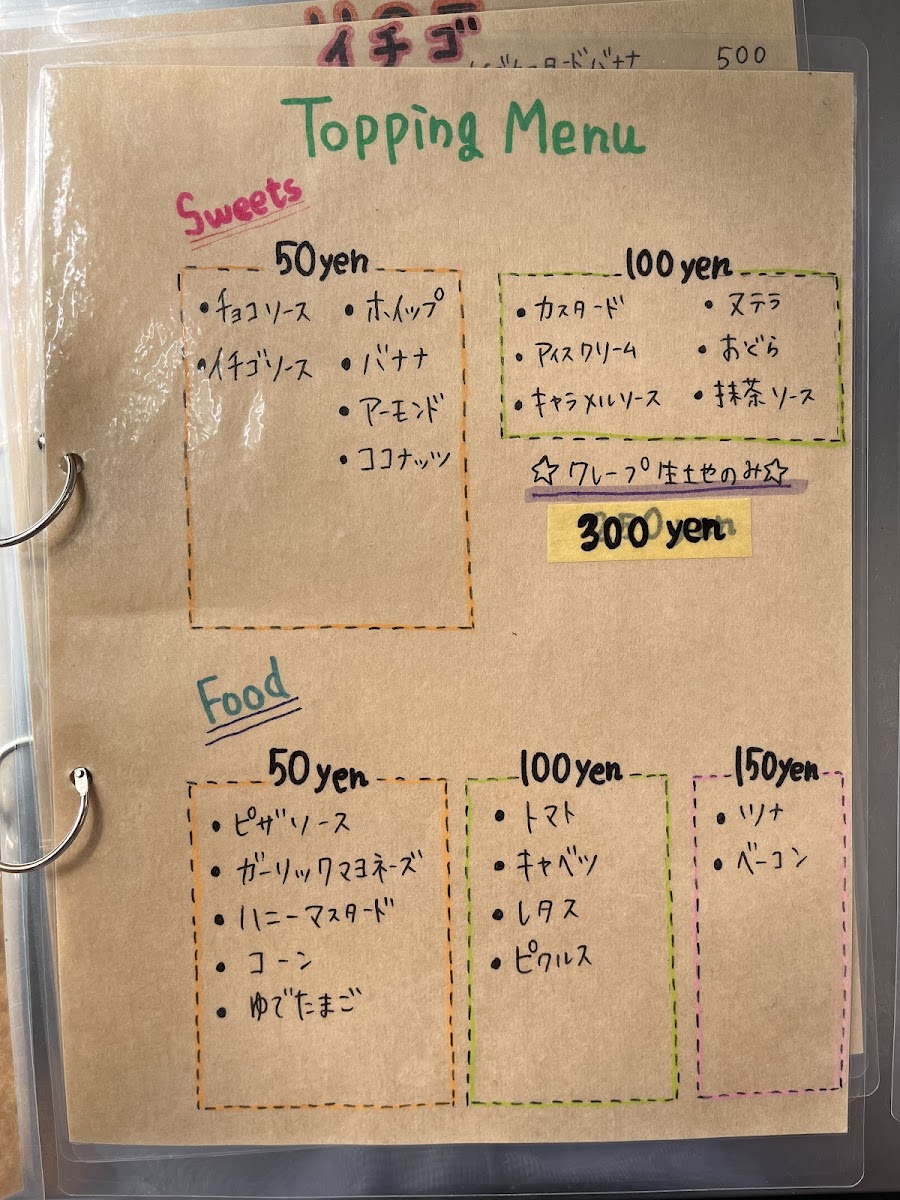 イチゴ
500
Topping Menu
Sweets
50yen
・チョコソース
・イチゴソース
・ホイップ
・バナナ
・アーモンド
・ココナッツ
100yen
・カスタード
・アイスクリーム
・キャラメルソース
・ヌテラ
・おぐら
・抹茶ソース
☆クレープ生地のみ☆
300 yen
Food
50yen
・ピザソース
・ガーリックマヨネーズ
・ハニーマスタード
・コーン
・ゆでたまご
100yen
・トマト
・キャベツ
・レタス
・ピクルス
150yen
・ツナ
・ベーコン